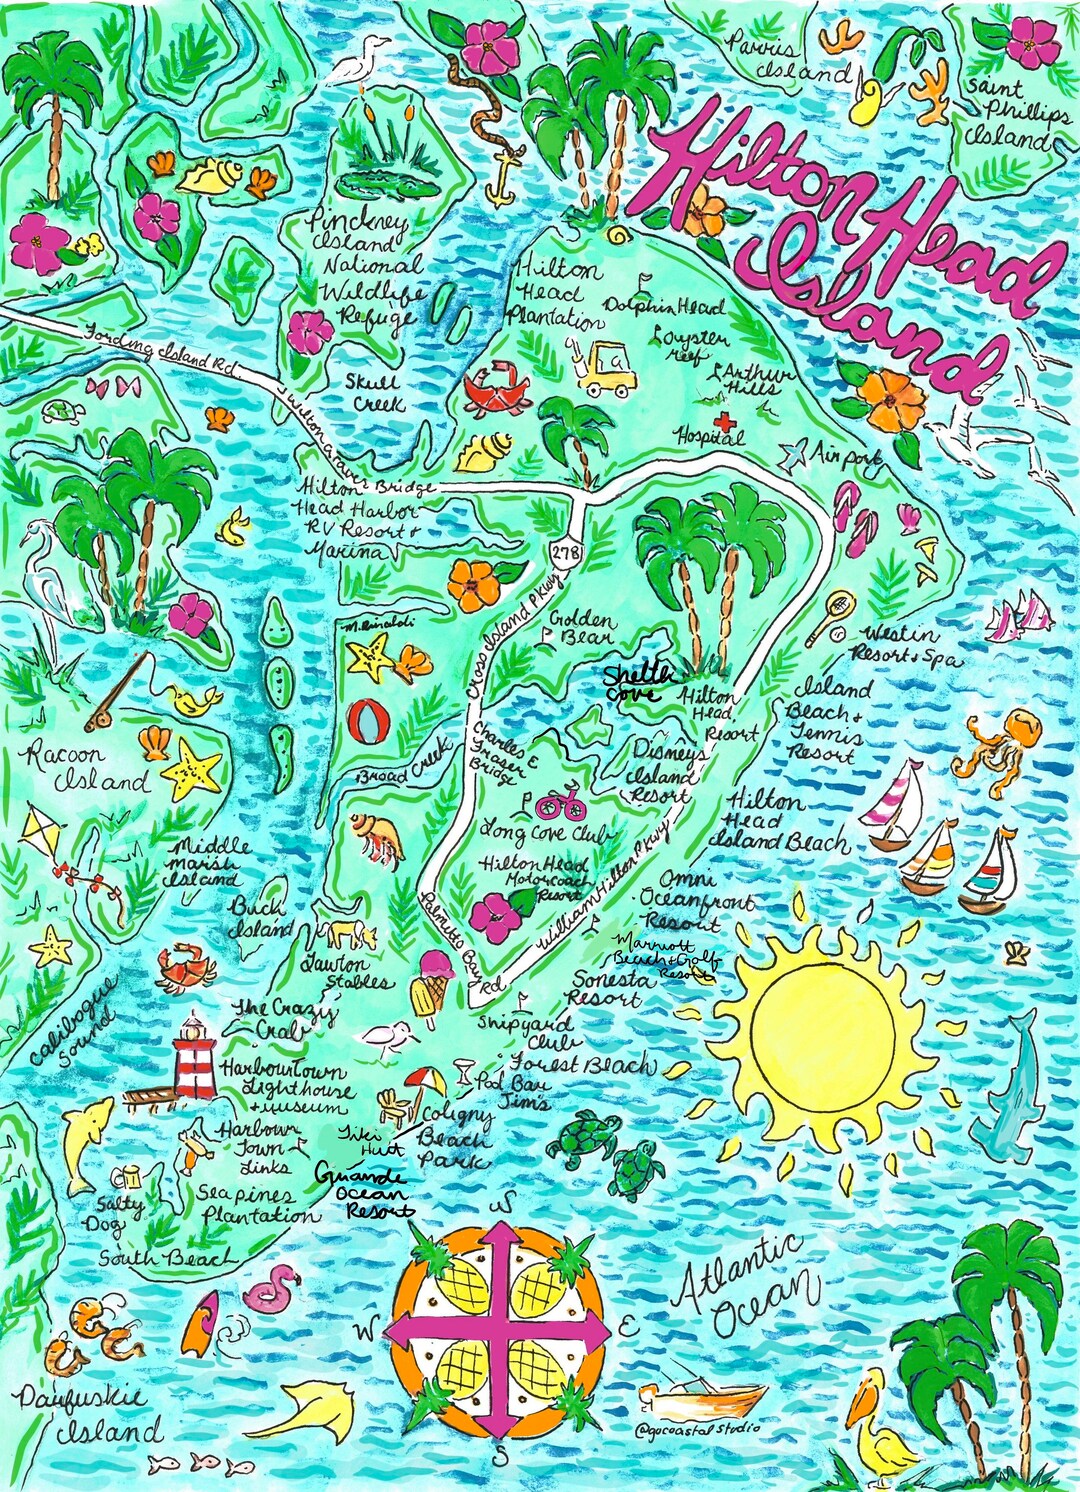 Parris
Island
Saint
Phillips
Island
Hilton Head
Island
Pinckney
Island
National
Wildlife
Refuge
Hilton
Head
Plantation
Dolphin Head
Oyster
reef
Arthur
Hills
Fording Island Rd
Skull
Creek
Hospital
Airport
Bridge
Hilton
Head Harbor
RV Resort +
Marina
278
Cross Island Pkwy
M. Rinaldi
Golden
Bear
Shelter
Cove
Westin
Resort + Spa
Hilton
Head
Resort
Island
Beach +
Tennis
Resort
Racoon
Island
Broad Creek
Charles E
Fraser
Bridge
Disneys
Island
Resort
Long Cove Club
Hilton
Head
Island Beach
Middle
Marsh
Island
Hilton Head
Motorcoach
Resort
William Hilton Pkwy
Omni
Oceanfront
Resort
Buck
Island
Palmetto Bay
Rd
Marriott
Beach + Golf
Resort
Lawton
Stables
Sonesta
Resort
Calibogue
Sound
The Crazy
Crab
Shipyard
Club
Harbour Town
Lighthouse
+ museum
Forest Beach
Pool Bar
Jim's
Coligny
Beach
Park
Tiki
Hut
Harbour
Town
Links
Grande
Ocean
Resort
Salty
Dog
Sea pines
Plantation
South Beach
N
W
E
S
Atlantic
Ocean
Daufuskie
Island
@gocoastalstudio